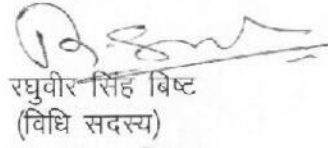 रघुवीर सिंह बिष्ट
(विधि सदस्य)